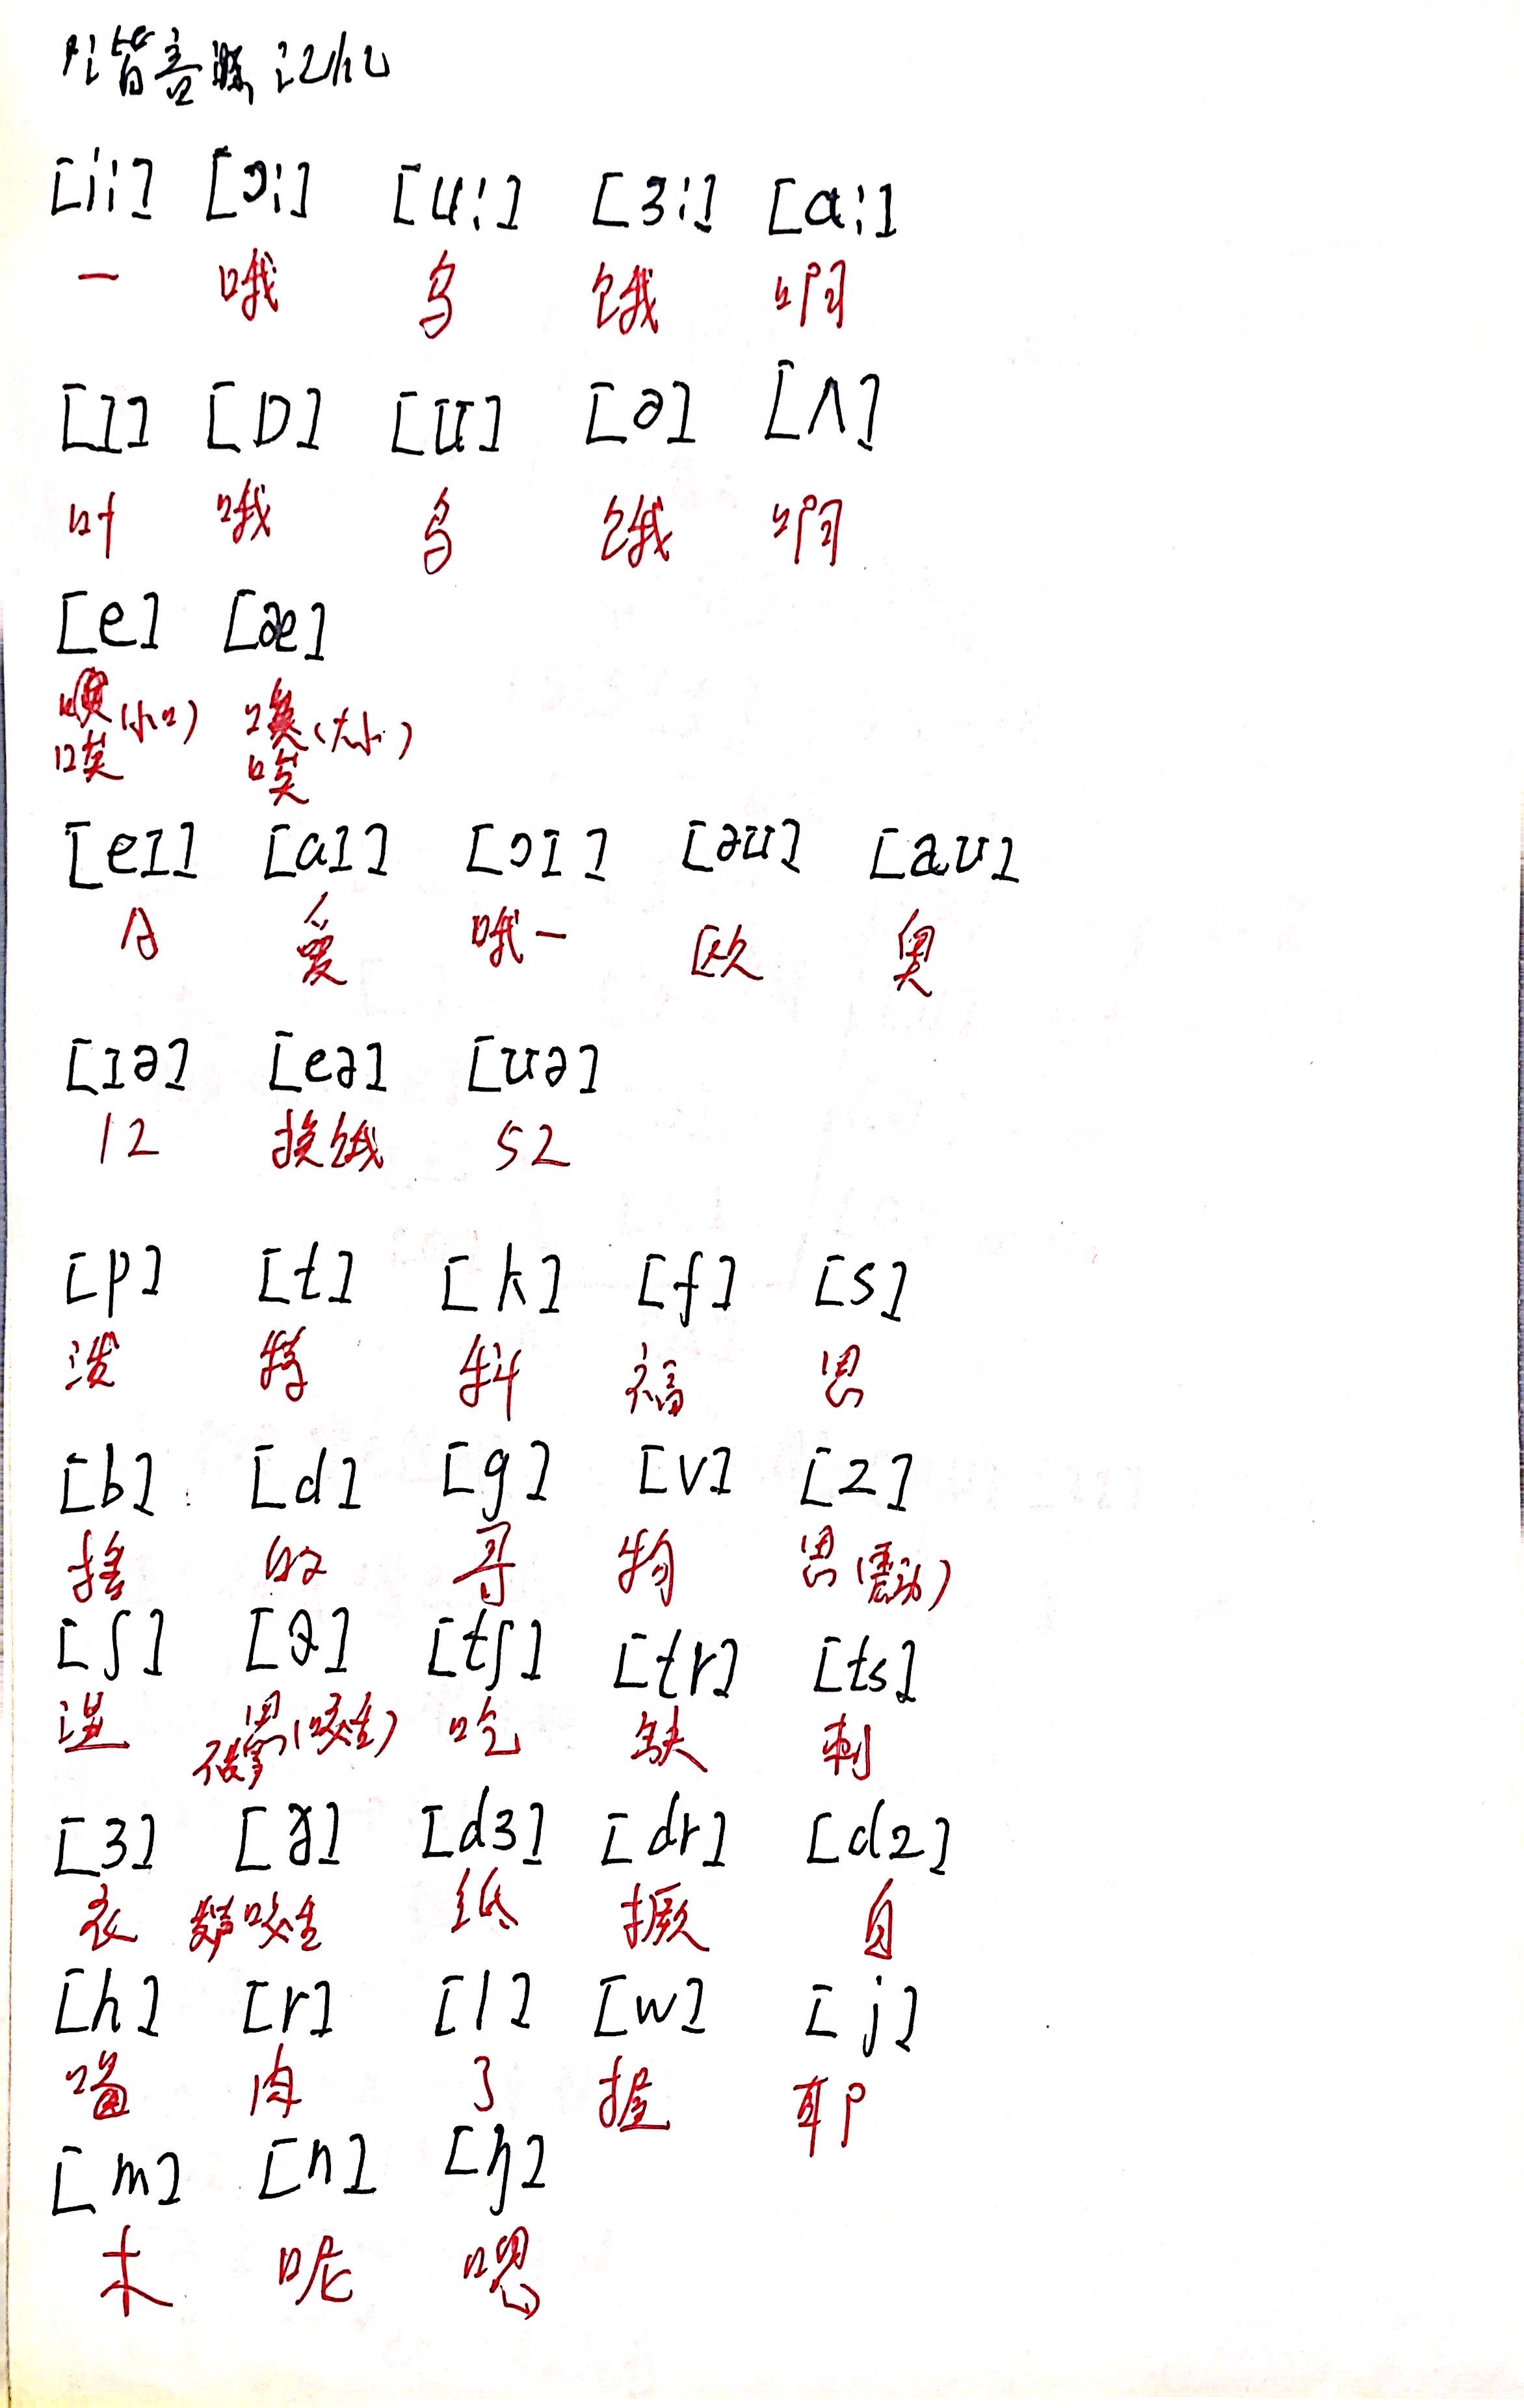 谐音 记忆
[i:] [ɔ:] [u:] [ɜ:] [ɑ:]
一 哦 乌 饿 啊
[ɪ] [ɒ] [ʊ] [ə] [ʌ]
叶 哦 乌 饿 啊
[e] [æ]
(小口) (大口)
唉 唉
[eɪ] [aɪ] [ɔɪ] [əʊ] [aʊ]
A 爱 哦一 欧 奥
[ɪə] [eə] [ʊə]
12 挨饿 52
[p] [t] [k] [f] [s]
泼 特 科 福 思
[b] [d] [g] [v] [z]
的 哥 物 思(震动)
[ʃ] [θ] [tʃ] [tr] [ts]
湿 思(咬舌) 吃 缺 刺
[ʒ] [ð] [dʒ] [dr] [dz]
衣 咬舌 纸 撅 自
[h] [r] [l] [w] [j]
喝 肉 了 握 耶
[m] [n] [ŋ]
木 呢 嗯